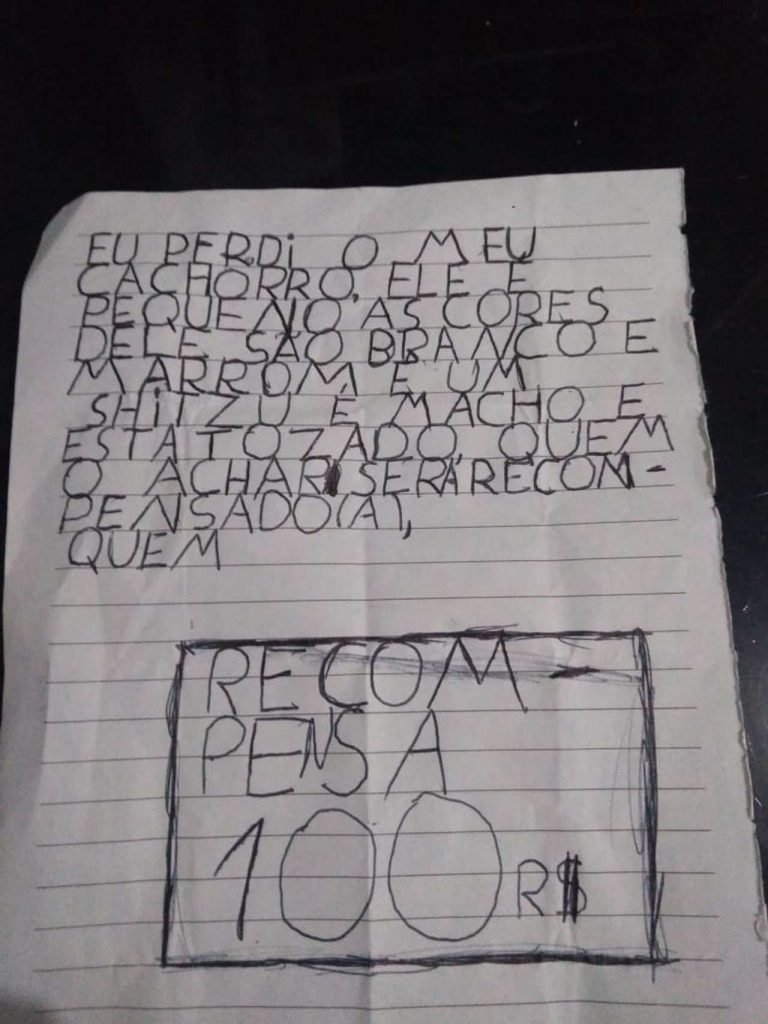 EU PERDi O MEU
CACHORRO, ELE E
PEQUENO AS CORES
DELE SÃO BRANCO E
MARROM E UM
SHiTZU É MACHO E
ESTA TOZADO, QUEM
O ACHAR SERÁ RECOM-
PENSADO(A),
QUEM
RECOM-
PENSA
100 R$